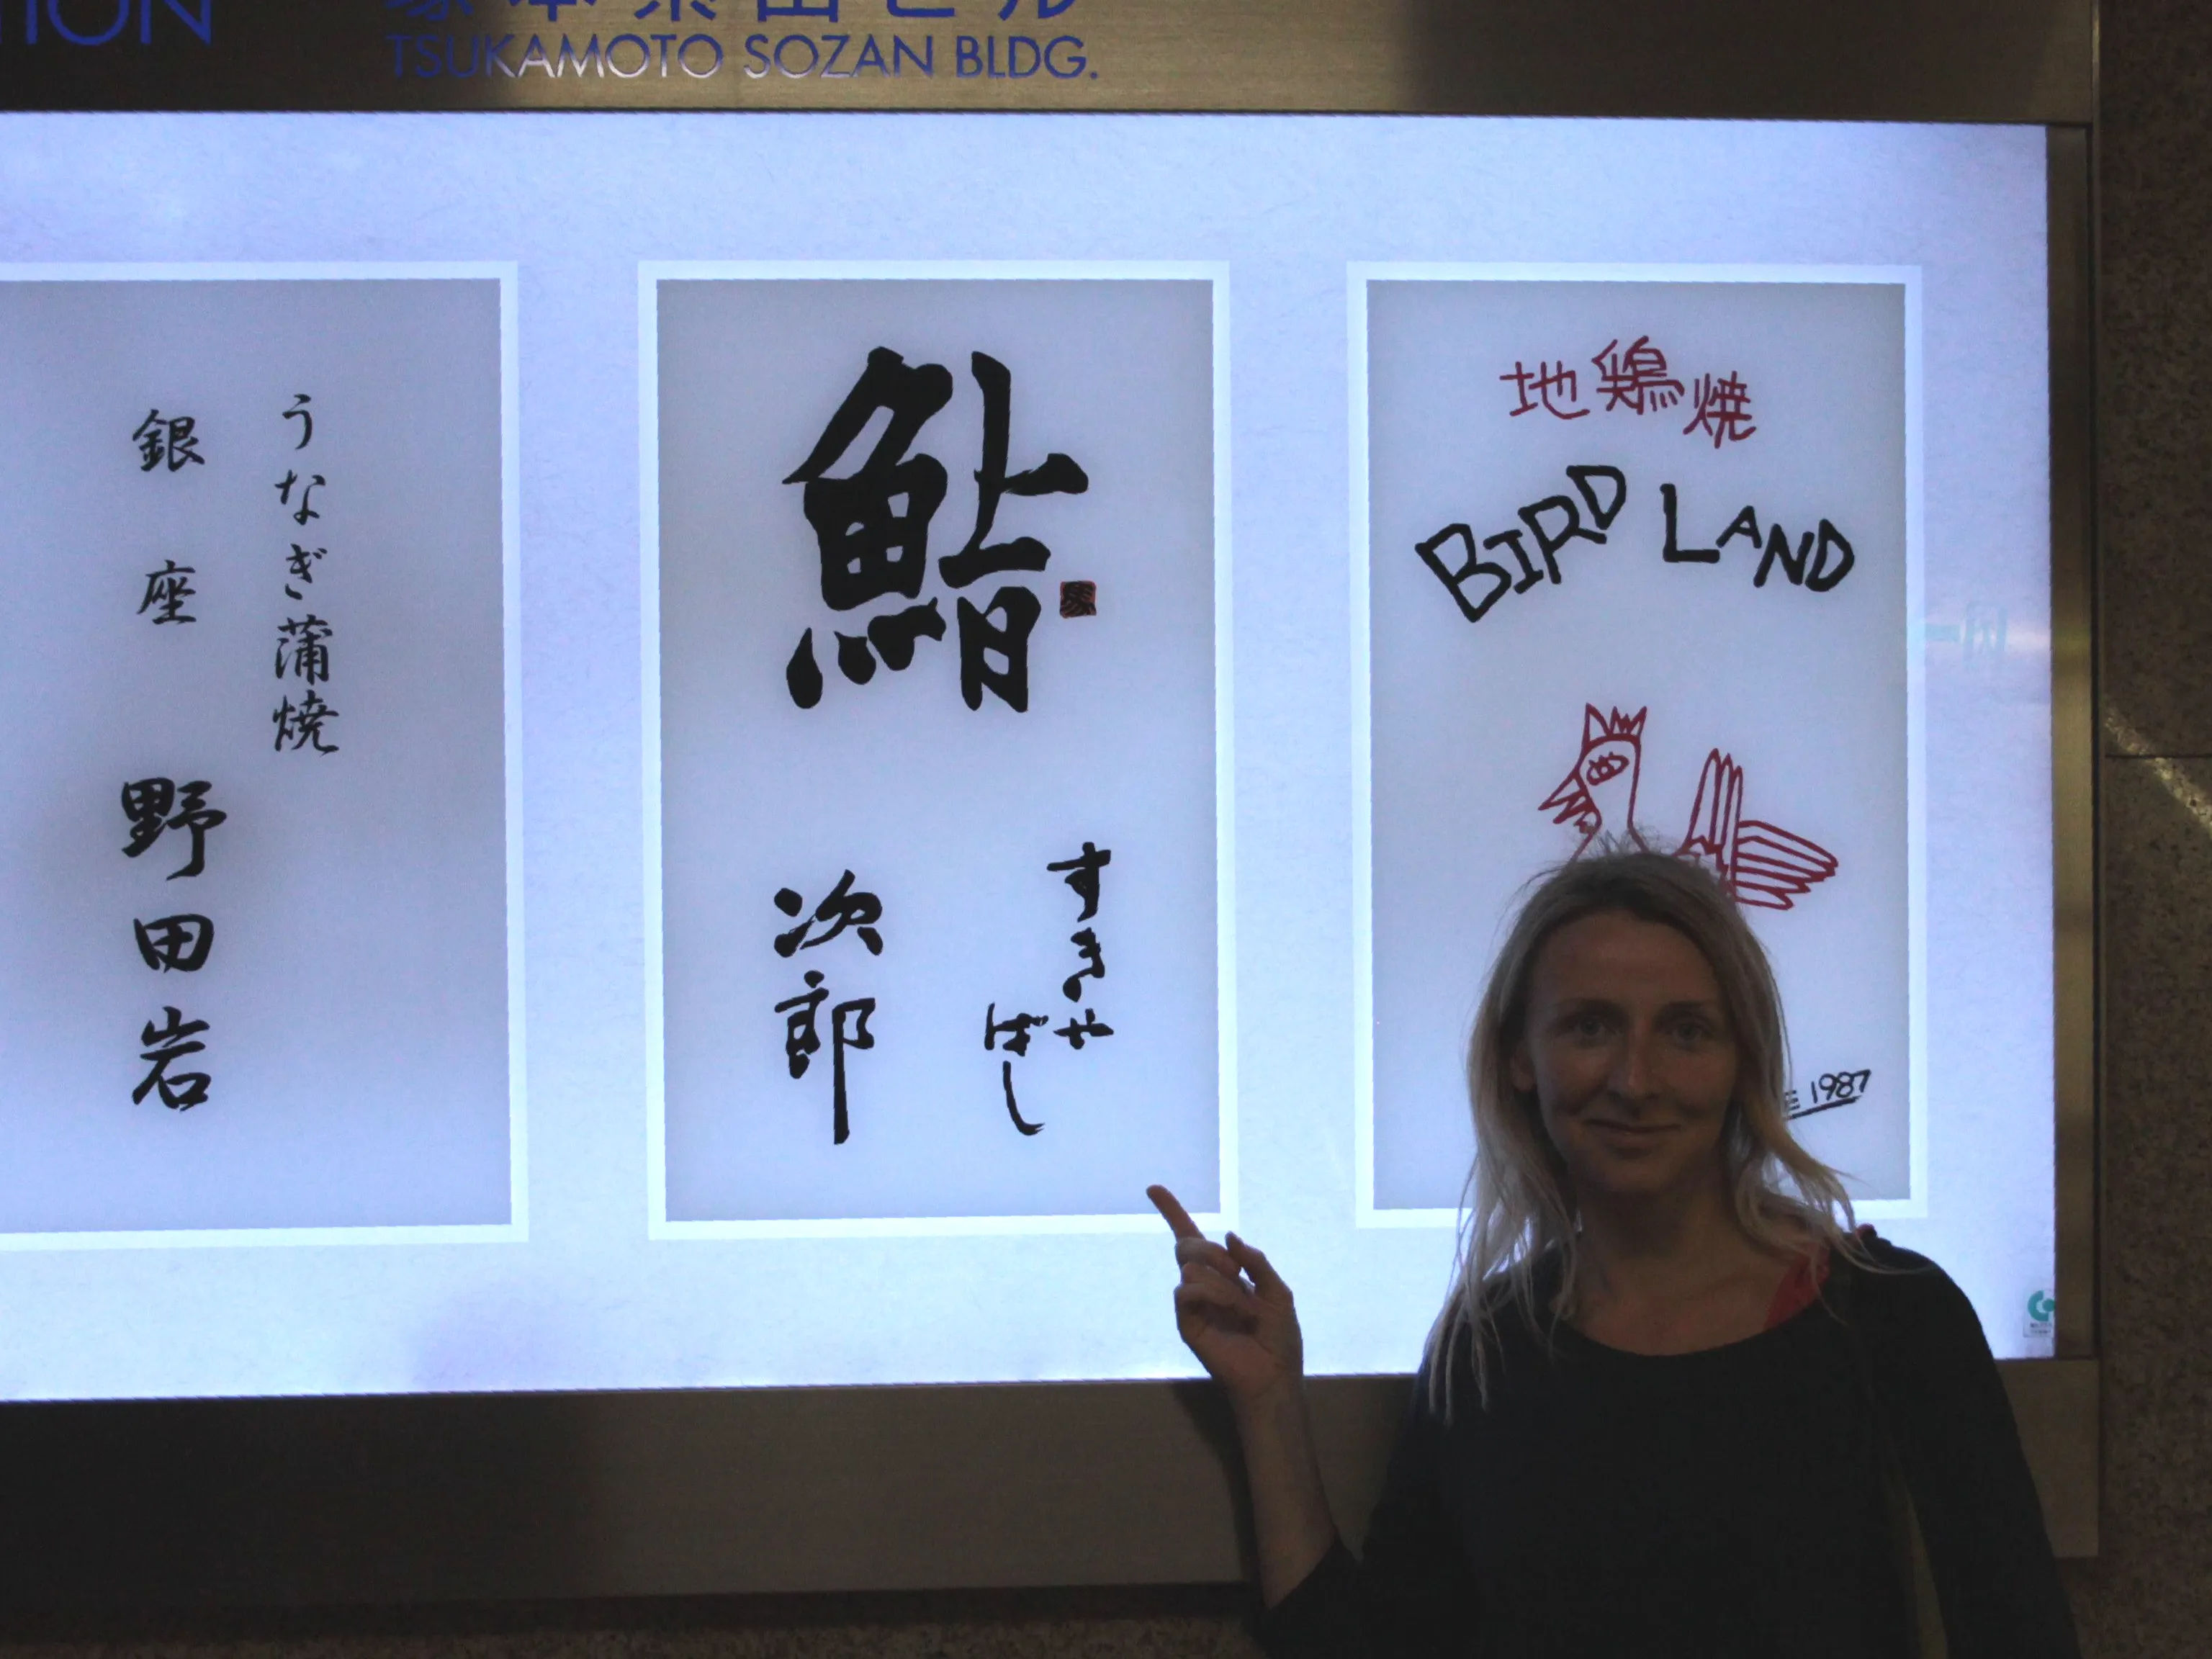 TION
塚本素山ビル
TSUKAMOTO SOZAN BLDG.
うなぎ蒲焼
銀座 野田岩
鮨
すきや
ばし
次郎
地鶏焼
BIRD LAND
1987